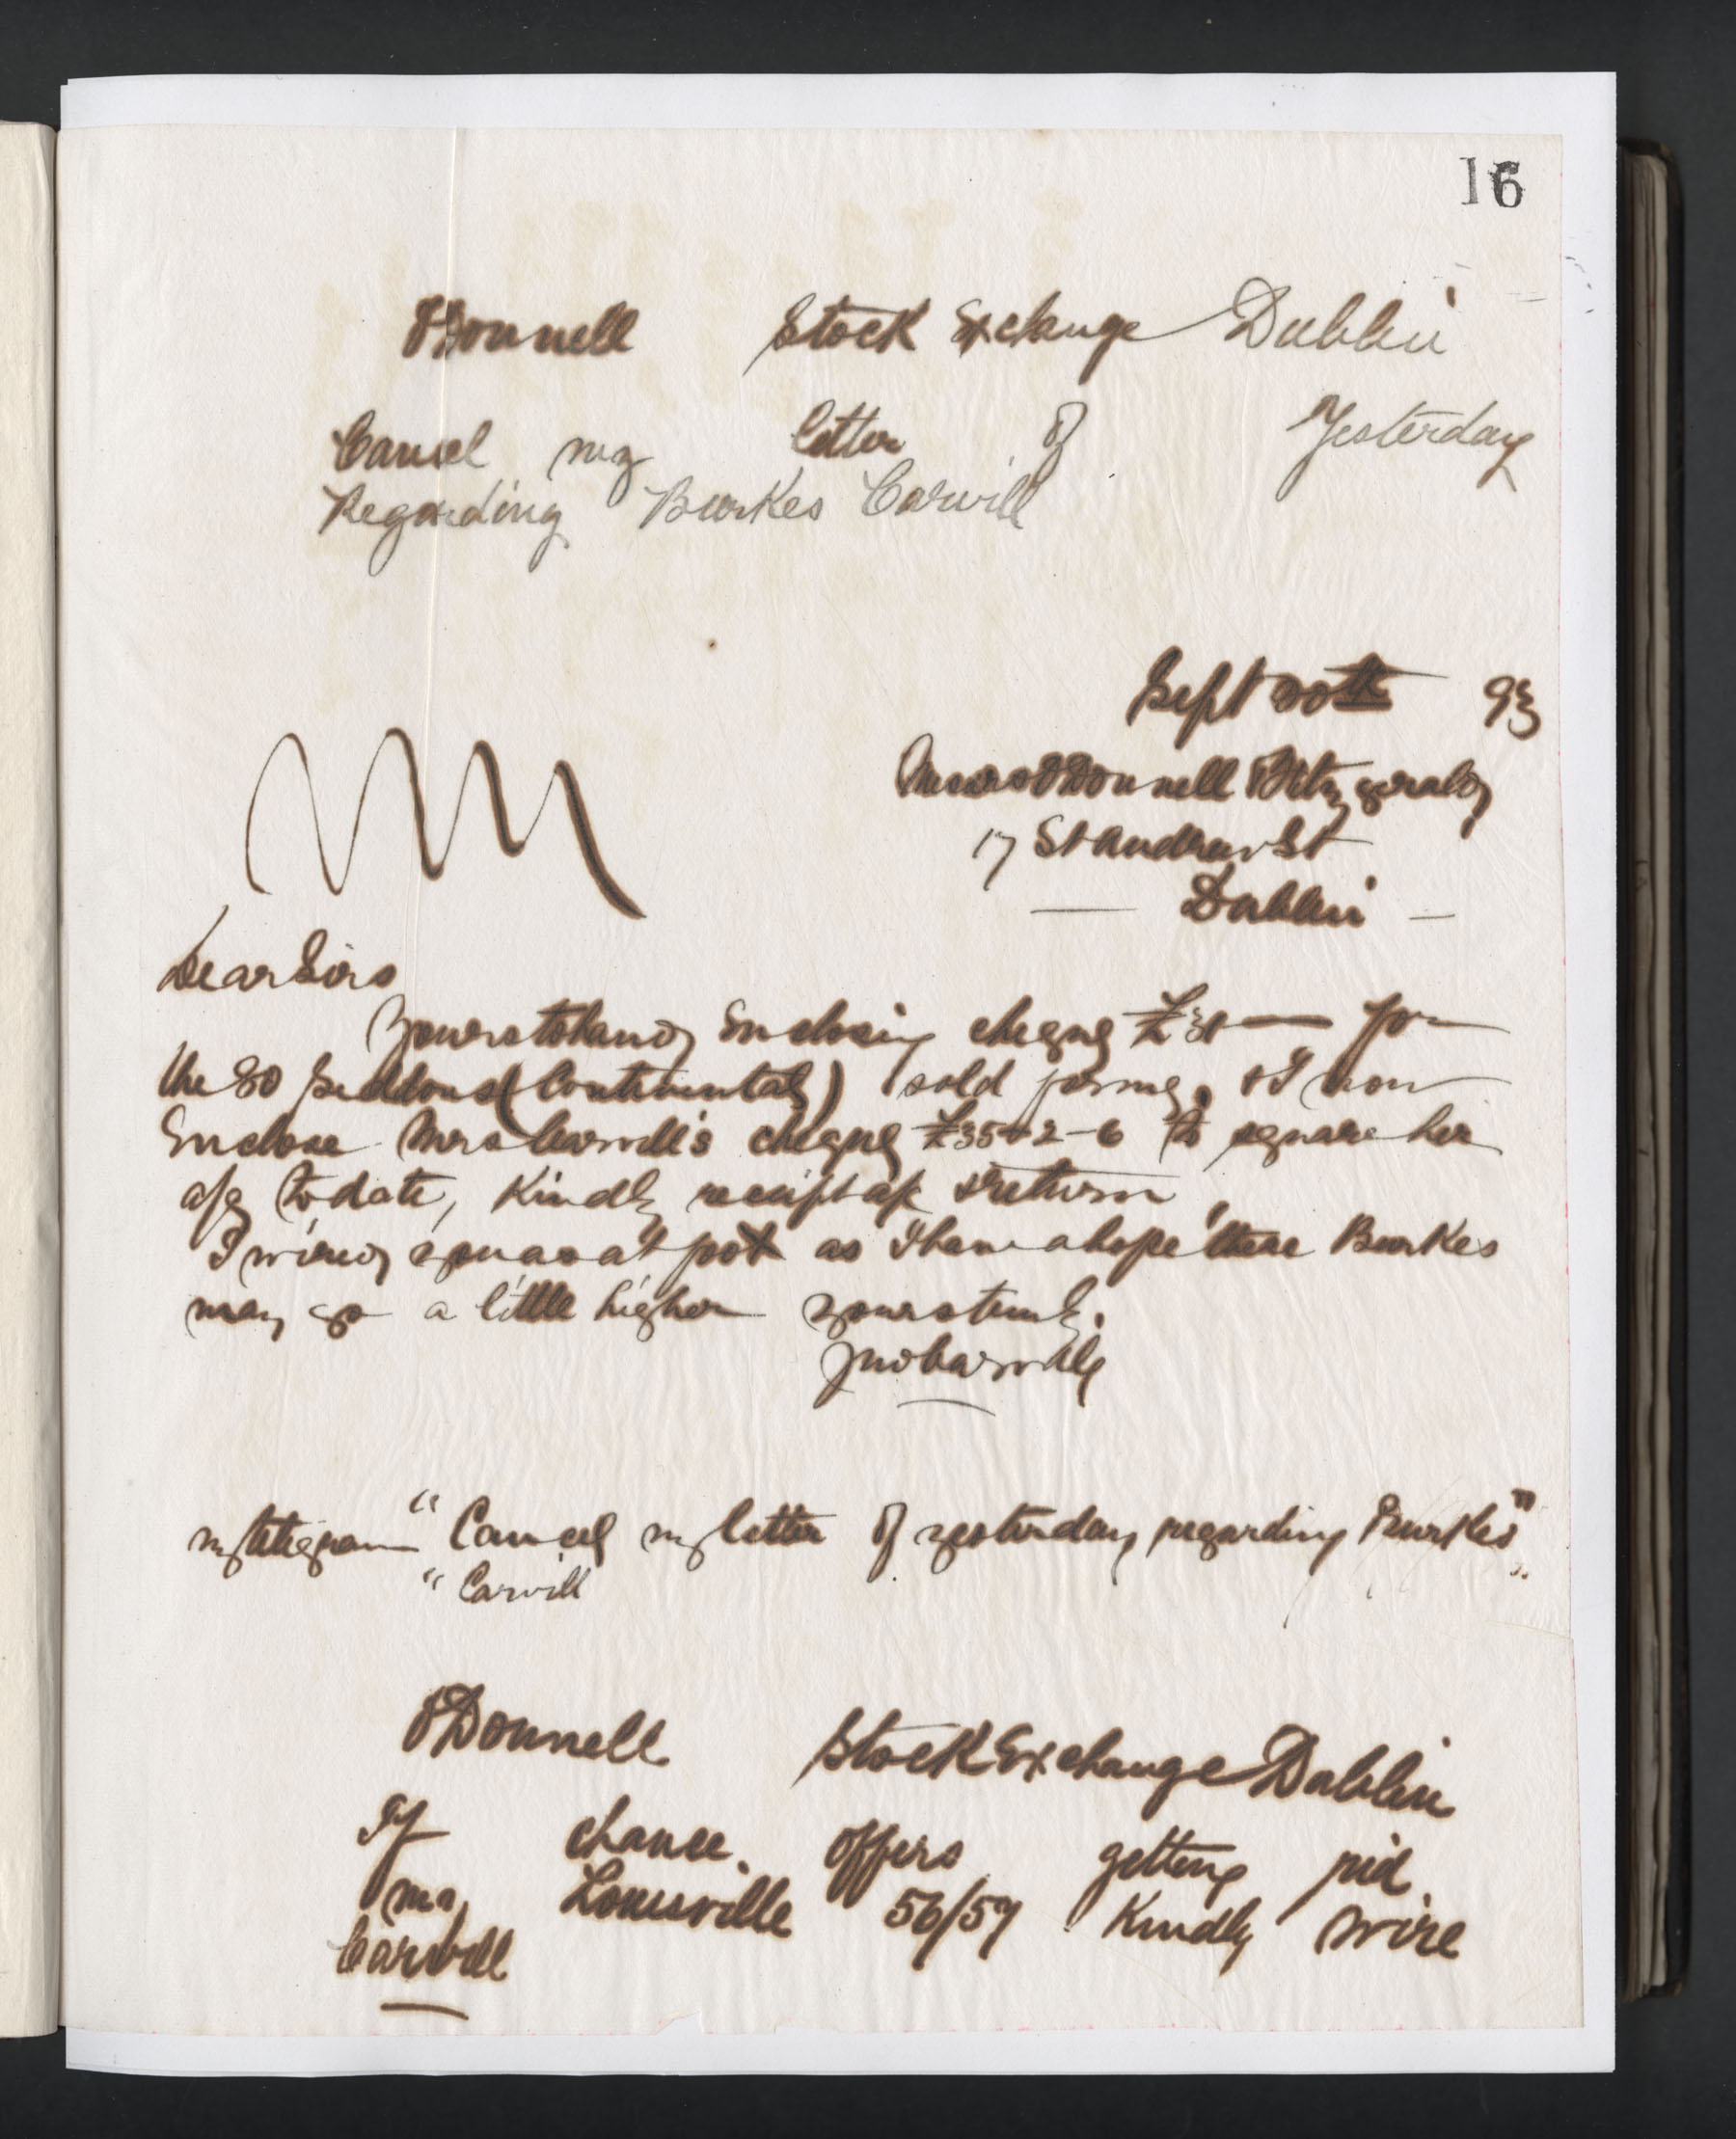 16
O'Donnell Stock Exchange Dublin
Cancel my letter of Yesterday
Regarding Burkes Carvill
Sept 20th 93
Messrs O'Donnell & Fitzgerald
17 St Andrew St
Dublin
Dear Sirs
Yours to hand Enclosing cheque for
the 80 Seddons (Continental) sold for me, & I now
Enclose Mrs Carvill's cheque £35-2-6 to square her
a/c to date, Kindly receipt a/c & return
I wired you as at foot as I have a hope these Burkes
may go a little higher yours truly.
Jno Carvill
my telegram "Cancel my letter of yesterday regarding Burkes"
"Carvill
O'Donnell Stock Exchange Dublin
If chance offers getting rid
my Louisville 56/57 Kindly wire
Carvill